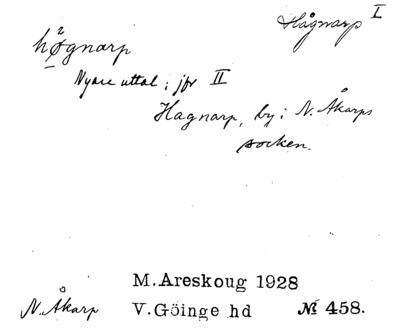 Hågnarp I
hǿgnarp
Nyare uttal; jfr II
Hagnarp, by i N. Åkarps
socken.
M. Areskoug 1928
N. Åkarp V. Göinge hd № 458.